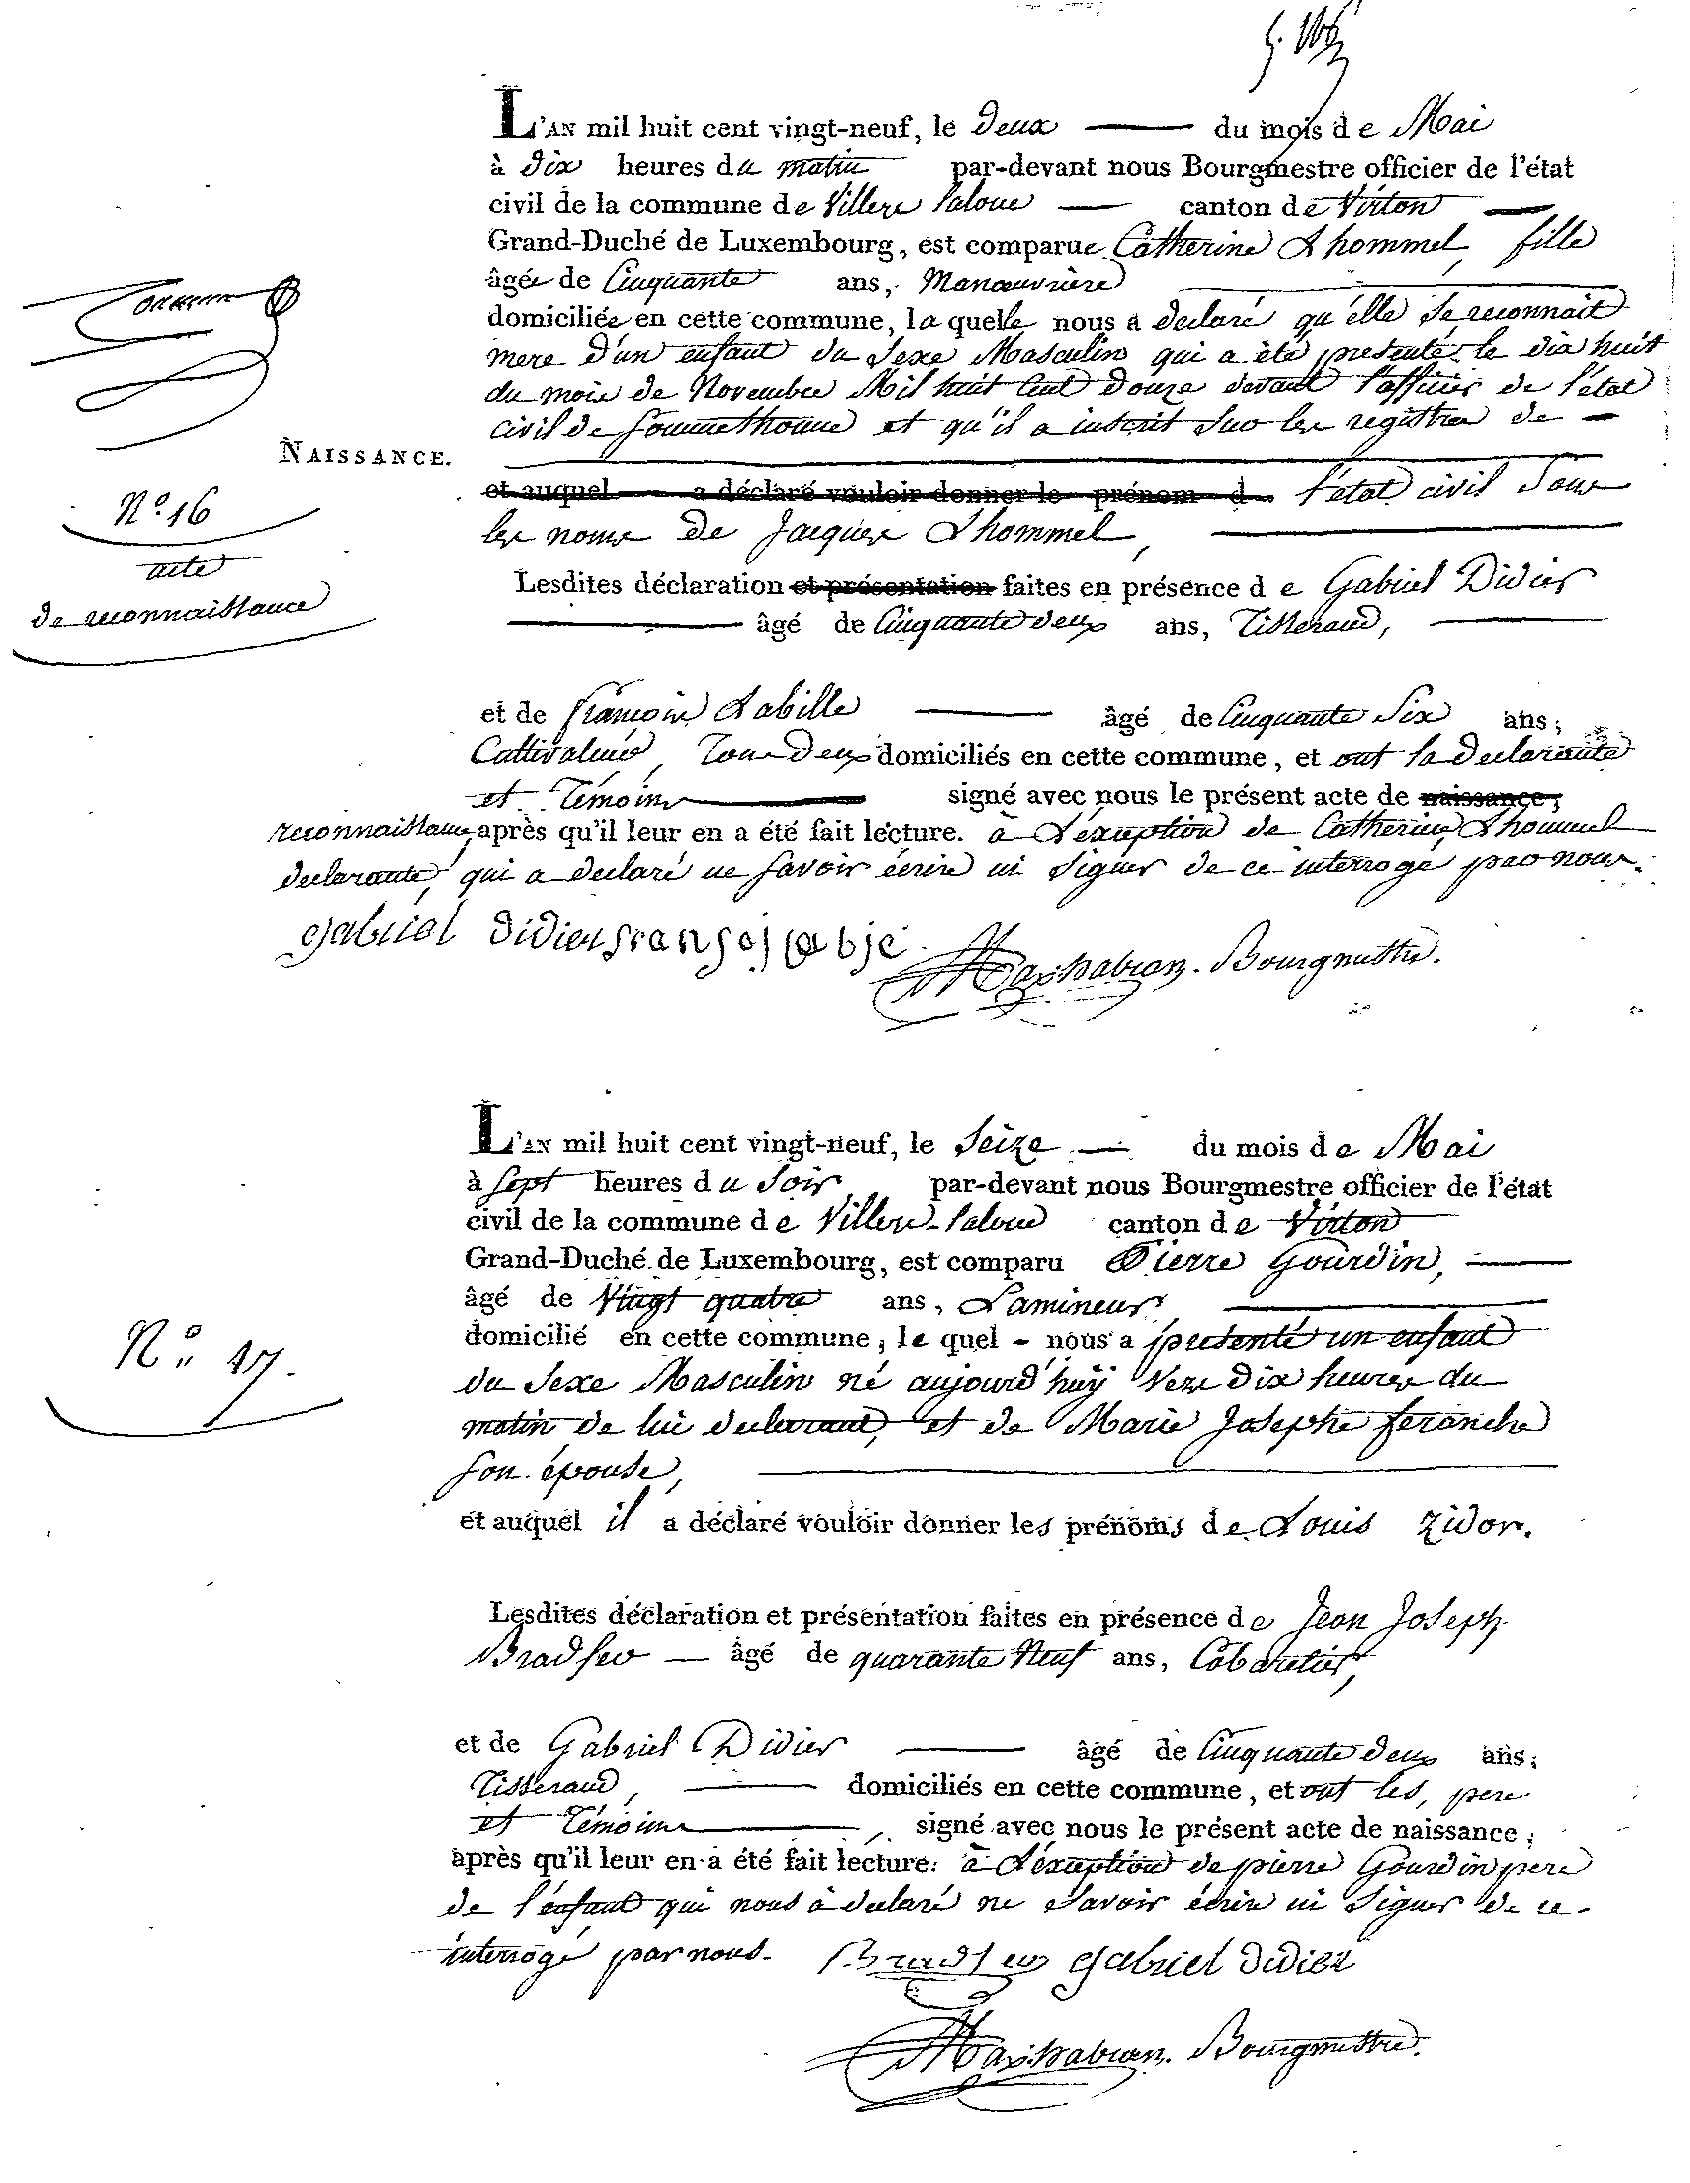 L'AN mil huit cent vingt-neuf, le deux du mois de Mai
à dix heures du matin par-devant nous Bourgmestre officier de l'état
civil de la commune de Villers laloue canton de Virton
Grand-Duché de Luxembourg, est comparue Catherine Lhommel, fille
âgée de Cinquante ans, Manœuvrière
domiciliée en cette commune, laquelle nous a declaré qu'elle se reconnait
mere d'un enfant du sexe Masculin qui a été presenté le dix huit
du mois de Novembre Mil huit Cent Douze devant l'officier de l'état
civil de Sommethonne et qu'il a inscrit sur les registres de
NAISSANCE.
et auquel a déclaré vouloir donner le prénom d l'etat civil sous
les noms de Jacques Lhommel,
N.o 16
acte
de reconnaissance
Lesdites déclaration et présentation faites en présence de Gabriel Didier
âgé de Cinquante deux ans, Tisserand,
et de François Labille âgé de Cinquante Six ans;
Cultivateur, Tous deux domiciliés en cette commune, et ont la declarante
et Témoins signé avec nous le présent acte de naissance;
reconnaissance, après qu'il leur en a été fait lecture. à L'exception de Catherine Lhommel
declarante, qui a declaré ne savoir écrire ni signer de ce interrogé par nous.
gabriel didier fransoi labie
Bourgmestre.
L'AN mil huit cent vingt-neuf, le Seize du mois de Mai
à Sept heures du Soir par-devant nous Bourgmestre officier de l'état
civil de la commune de Villers-laloue canton de Virton
Grand-Duché de Luxembourg, est comparu Pierre Gourdin,
âgé de Vingt quatre ans, Lamineur
domicilié en cette commune, lequel nous a presenté un enfant
du Sexe Masculin né aujourd'huÿ Vers Dix heures du
N.o 17.
matin de lui declarant, et de Marie Josephe
son épouse,
et auquel il a déclaré vouloir donner les prénoms de Louis Zidor.
Lesdites déclaration et présentation faites en présence de Jean Joseph
Bradfer âgé de quarante Neuf ans, Cabaretier,
et de Gabriel Didier âgé de Cinquante deux ans;
Tisserand, domiciliés en cette commune, et ont les, pere
et Témoins signé avec nous le présent acte de naissance;
après qu'il leur en a été fait lecture. à L'exception de pierre Gourdin pere
de l'enfant qui nous à declaré ne Savoir écrire ni Signer de ce
interrogé par nous. Bradfer gabriel didier
Bourgmestre.